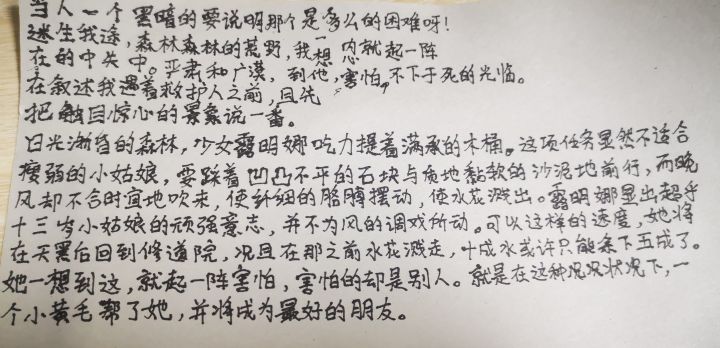 当人一个黑暗的要说明那个是多么的困难呀！
迷生我途，森林森林的荒野，我想一内就起一阵
在的中关中。严肃和广漠，到他，害怕，不下于死的光临。
在叙述我遇着救护人之前，且先
把触目惊心的景象说一番。
日光渐昏的森林，少女露明娜吃力提着满承的木桶。这项任务显然不适合
瘦弱的小姑娘，要踩着凹凸不平的石块与质地黏软的沙泥地前行，而晚
风却不合时宜地吹来，使纤细的胳膊摆动，使水花溅出。露明娜显出超乎
十三岁小姑娘的顽强意志，并不为风的调戏所动。可以这样的速度，她将
在天黑后回到修道院，况且在那之前水花溅走，叶成水或许只能余下五成了。
她一想到这，就起一阵害怕，害怕的却是别人。就是在这种况况状况下，一
个小黄毛帮了她，并将成为最好的朋友。